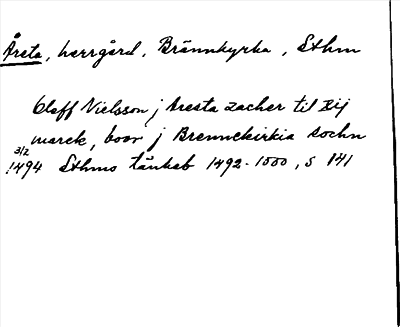 Årsta, herrgård, Brännkyrka, Sthm
Oleff Nielsson j Aresta zacher til xij
marck, boor j Brennekirkia sochn
3/2
1494 Sthms tänkeb 1492-1500, s 141